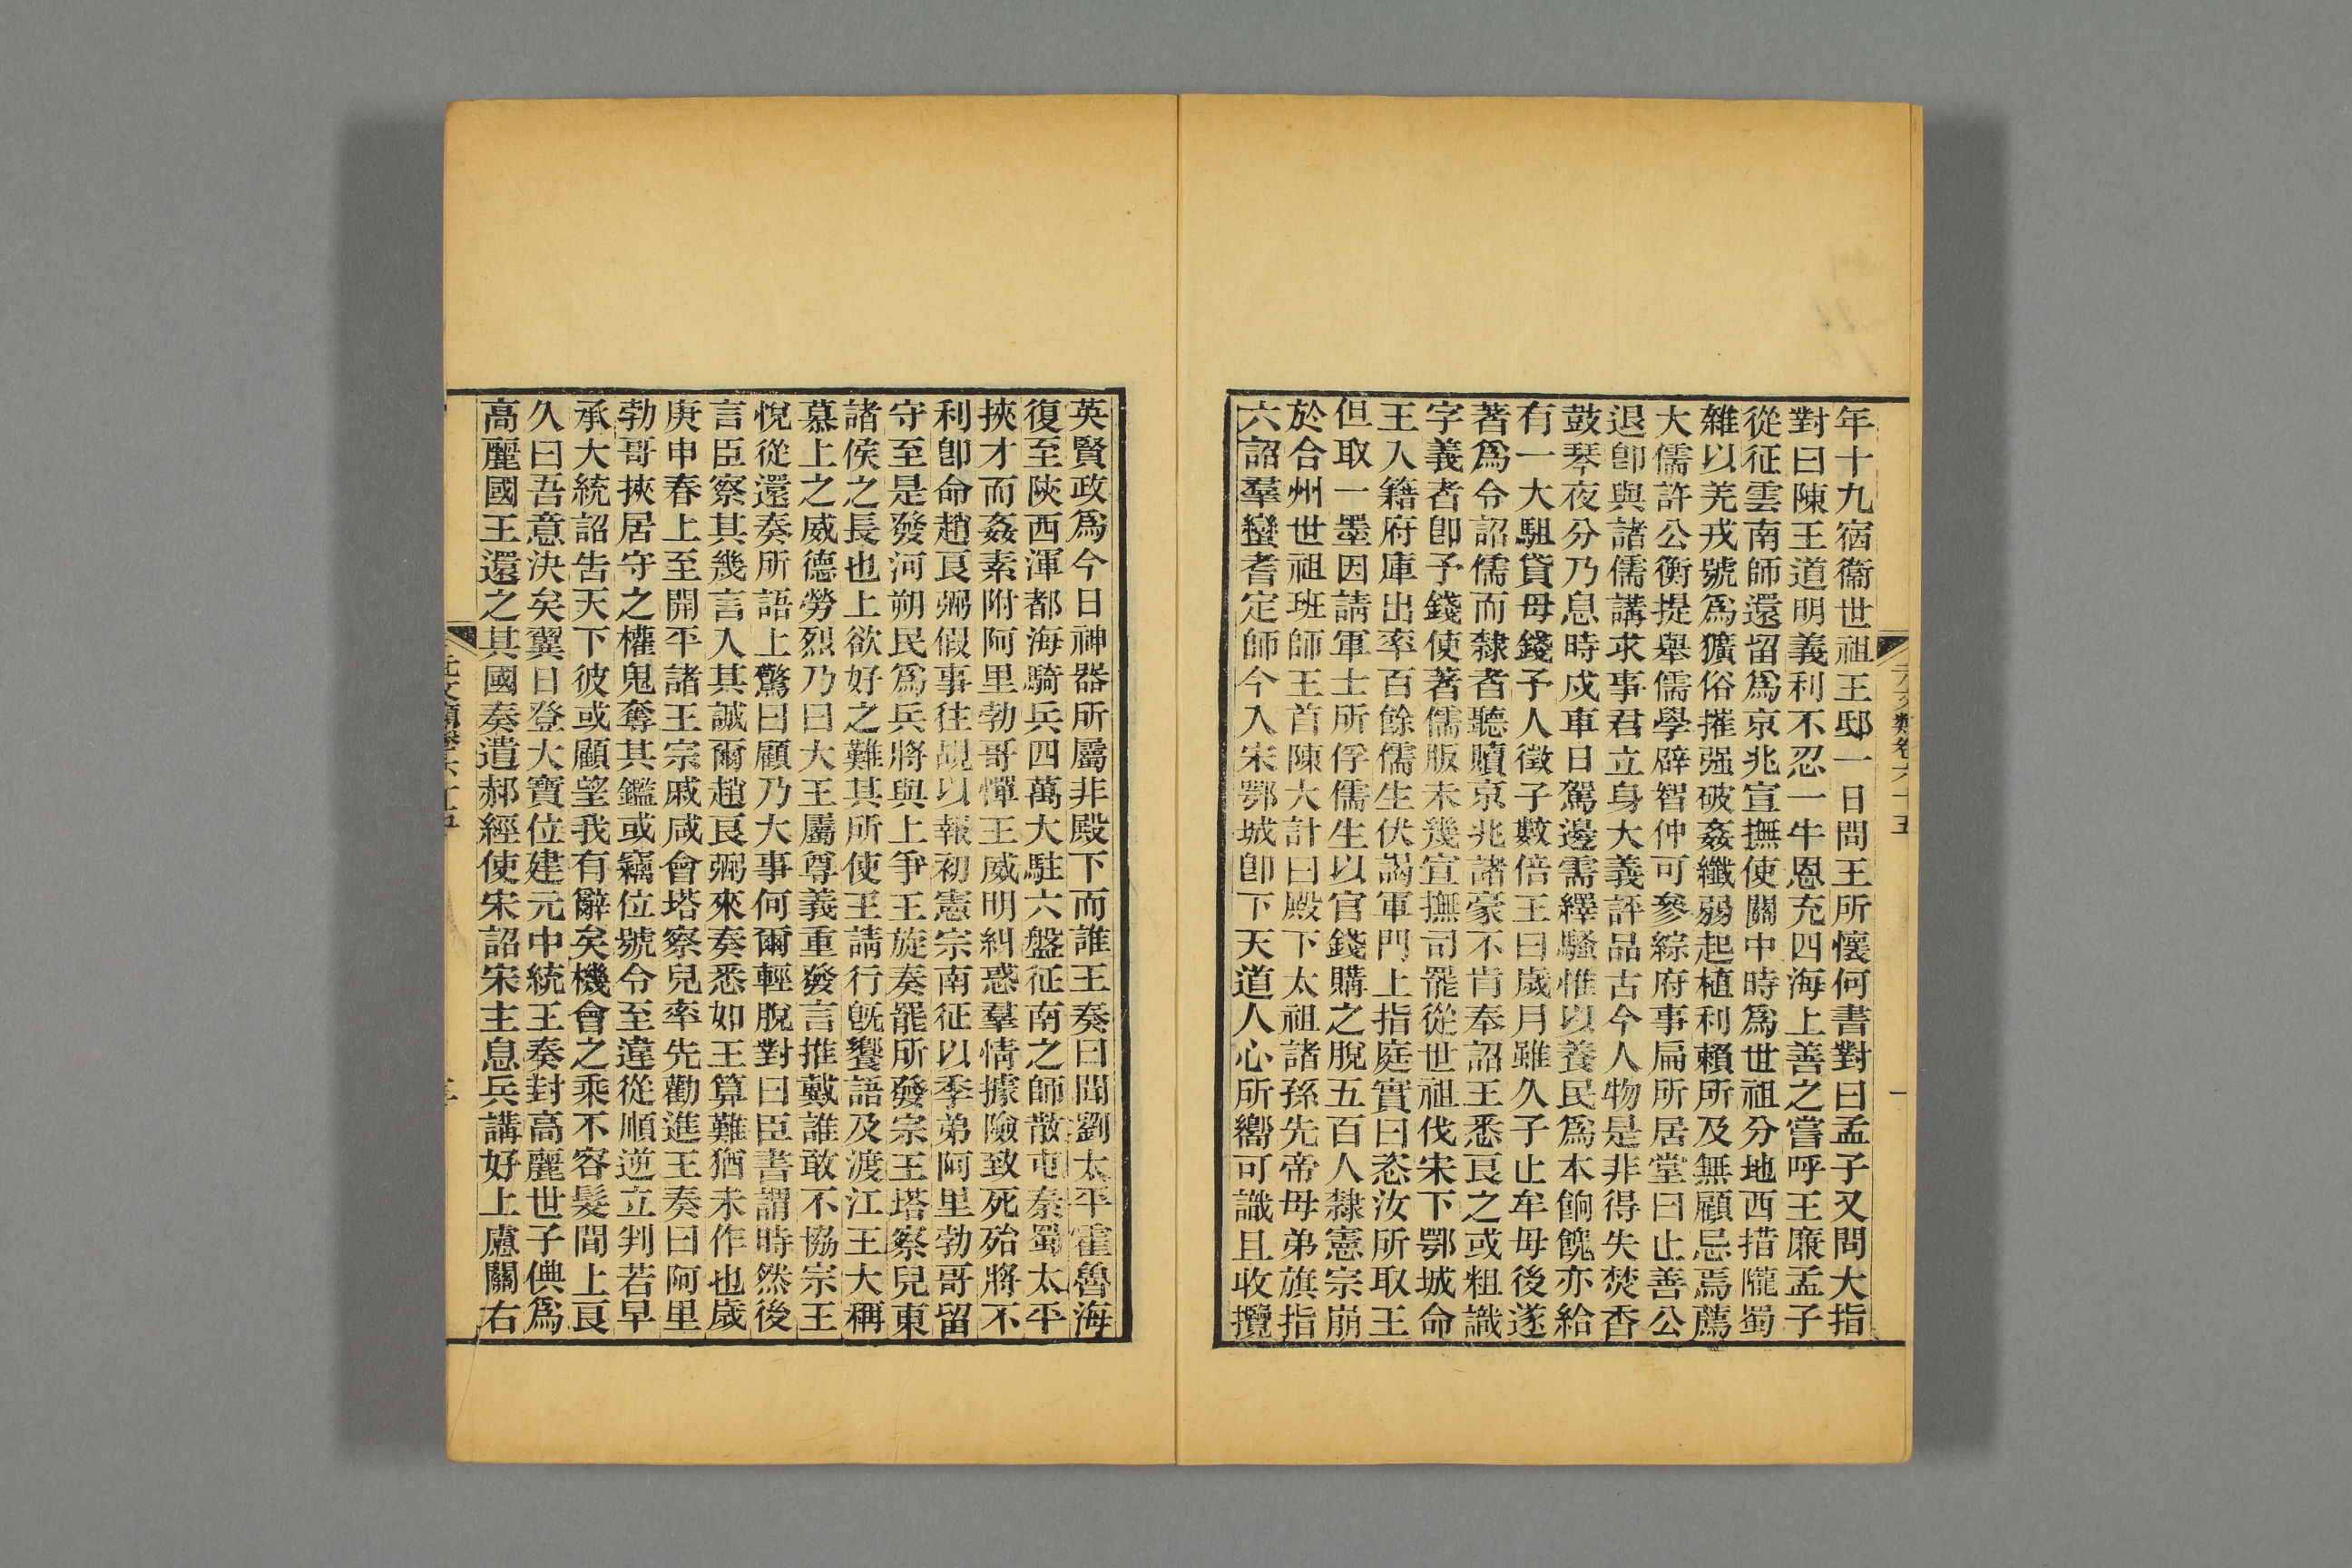 年十九宿衞世祖王邸一日問王所懷何書對曰孟子又問大指
對曰陳王道明義利不忍一牛恩充四海上善之嘗呼王廉孟子
從征雲南師還留爲京兆宣撫使關中時爲世祖分地西措隴蜀
雜以羌戎號爲獷俗摧强破姦纎弱起植利賴所及無顧忌焉薦
大儒許公衡提舉儒學辟智仲可參綜府事扁所居堂曰止善公
退卽與諸儒講求事君立身大義評品古今人物是非得失焚香
鼓琴夜分乃息時戍車日駕邊需繹騷惟以養民爲本餉餽亦給
有一大駔貸母錢予人徵子數倍王曰歲月雖久子止牟母後遂
著爲令詔儒而隸者聽贖京兆諸豪不肯奉詔王悉良之或粗識
字義者卽予錢使著儒服未幾宣撫司罷從世祖伐宋下鄂城命
王入籍府庫出率百餘儒生伏謁軍門上指庭實曰恣汝所取王
但取一墨因請軍士所俘儒生以官錢購之脫五百人隸憲宗崩
於合州世祖班師王首陳大計曰殿下太祖諸孫先帝母弟旗指
六詔羣蠻耆定師今入宋鄂城卽下天道人心所嚮可識且收攬
英賢政爲今日神器所屬非殿下而誰王奏曰聞劉太平霍魯海
復至陝西渾都海騎兵四萬大駐六盤征南之師散屯秦蜀太平
挾才而姦素附阿里勃哥憚王威明糾惑羣情據險致死殆將不
利卽命趙良弼假事往覘以報初憲宗南征以季弟阿里勃哥留
守至是發河朔民爲兵將與上爭王旋奏罷所發宗王塔察兒東
諸侯之長也上欲好之難其所使王請行旣饗語及渡江王大稱
慕上之威德勞烈乃曰大王屬尊義重發言推戴誰敢不協宗王
悅從還奏所語上驚曰顧乃大事何爾輕脫對曰臣書謂時然後
言臣察其幾言入其誠爾趙良弼來奏悉如王算難猶未作也歲
庚申春上至開平諸王宗戚咸會塔察兒率先勸進王奏曰阿里
勃哥挾居守之權鬼奪其鑑或竊位號令至違從順逆立判若早
承大統詔告天下彼或顧望我有辭矣機會之乘不容髮間上良
久曰吾意決矣翼日登大寶位建元中統王奏對高麗世子倎爲
高麗國王還之其國奏遣郝經使宋詔宋主息兵講好上慮關右